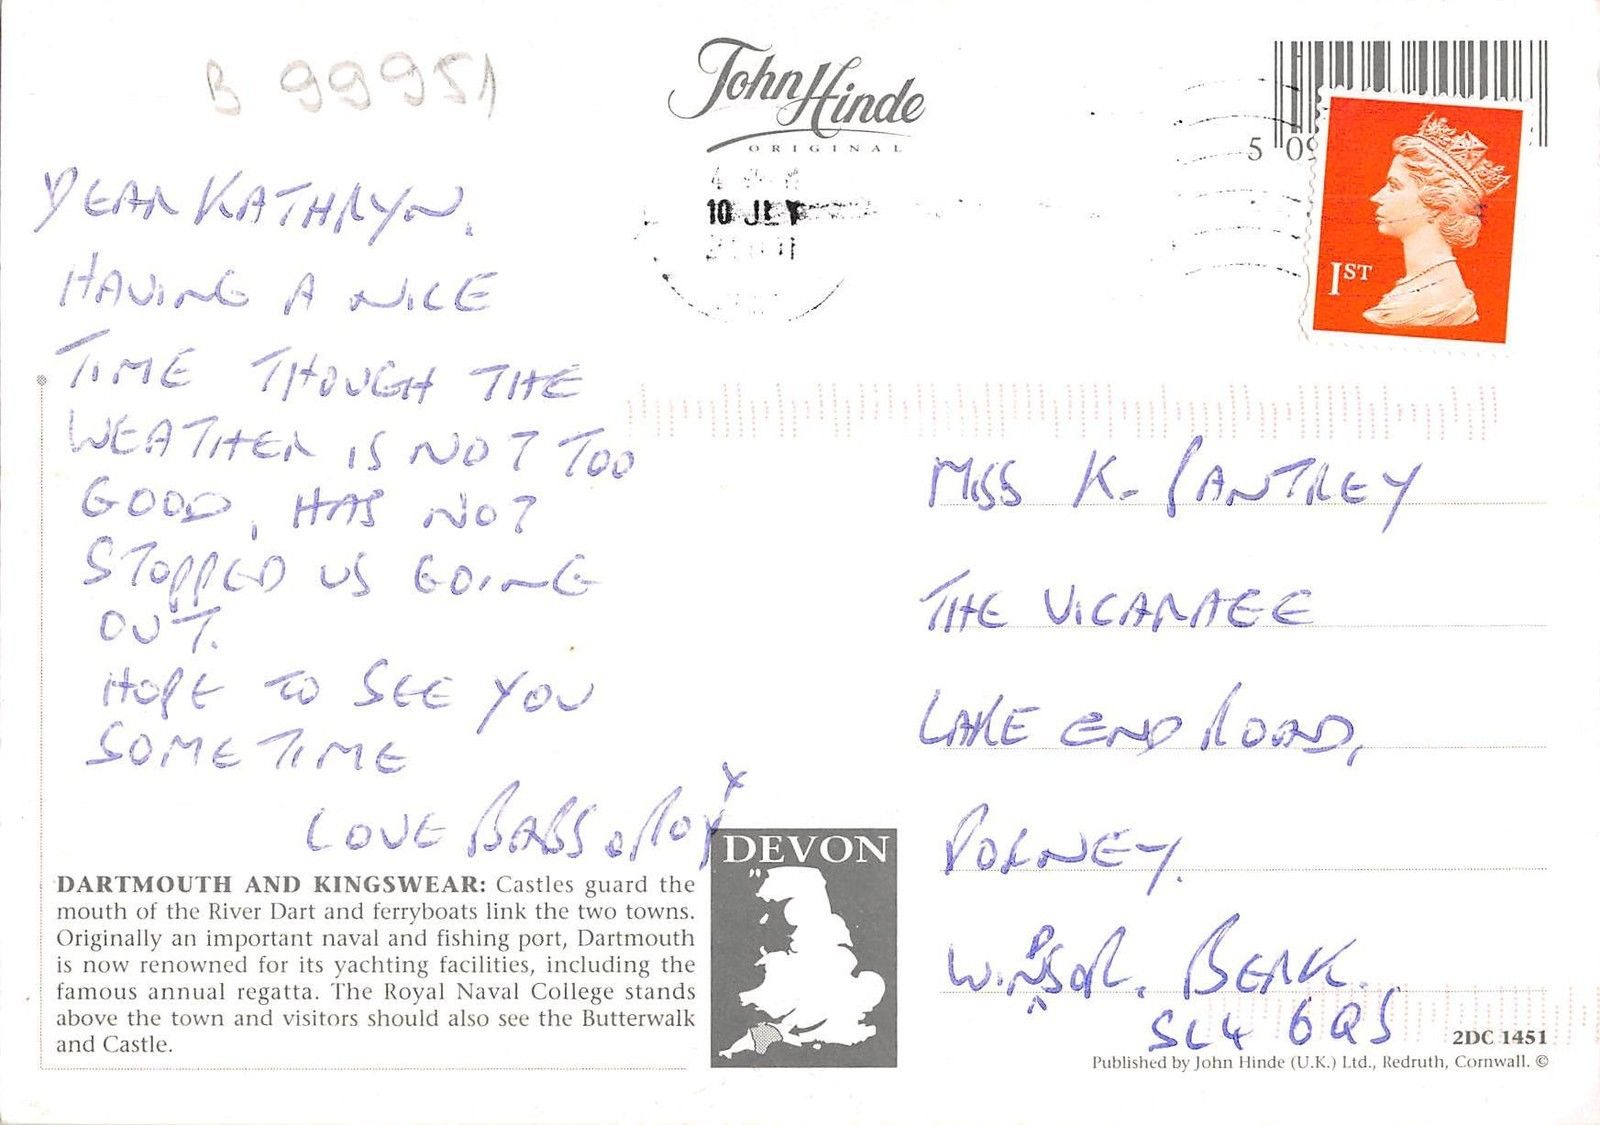 B 99951
John Hinde
ORIGINAL
5 09
10 JLY
1ST
DEAR KATHRYN.
HAVING A NICE
TIME THOUGH THE
WEATHER IS NOT TOO
GOOD, HAS NOT
STOPPED US GOING
OUT.
HOPE TO SEE YOU
SOMETIME
LOVE BABS & ROY X
MISS K. PANTREY
THE VICARAGE
LAKE END ROAD,
DORNEY.
WINDSOR. BERK.
SL4 6QS
DARTMOUTH AND KINGSWEAR: Castles guard the
mouth of the River Dart and ferryboats link the two towns.
Originally an important naval and fishing port, Dartmouth
is now renowned for its yachting facilities, including the
famous annual regatta. The Royal Naval College stands
above the town and visitors should also see the Butterwalk
and Castle.
DEVON
2DC 1451
Published by John Hinde (U.K.) Ltd., Redruth, Cornwall. ©